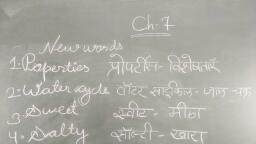 Ch-7
New words
1. Properties प्रोपर्टीस- विशेषताएँ
2. Water cycle वॉटर साइकिल- जल चक्र
3. Sweet स्वीट - मीठा
4. Salty सॉल्टी - खारा